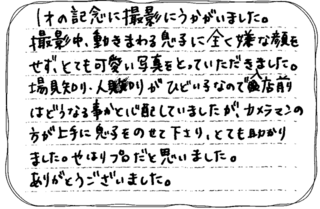 1才の記念に撮影にうかがいました。
撮影中、動きまわる息子に全く嫌な顔も
せず、とても可愛い写真をとっていただきました。
場見知り・人見知りがひどいるなので来店前
はどうなる事かと心配していましたが、カメラマンの
方が上手に息子をのせて下さり、とても助かり
ました。やはりプロだと思いました。
ありがとうございました。